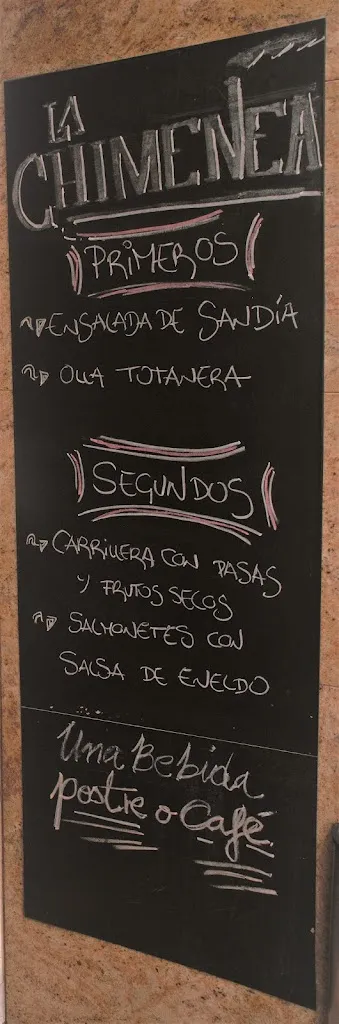 LA
CHIMENEA
PRIMEROS
ENSALADA DE SANDÍA
OLLA TOTANERA
SEGUNDOS
CARRILLERA CON PASAS
Y FRUTOS SECOS
SALMONETES CON
SALSA DE ENELDO
Una Bebida
postre o Café